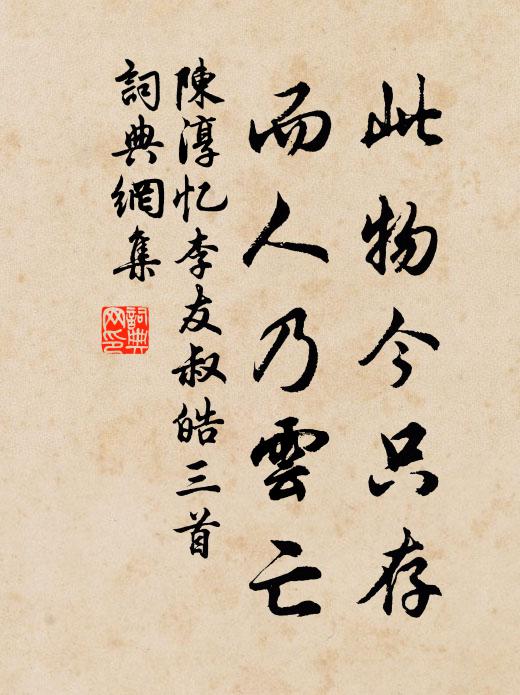 此物今只存
而人乃雲亡
陳淳忆李友叔皓三首
詞典網集
詞典
网印